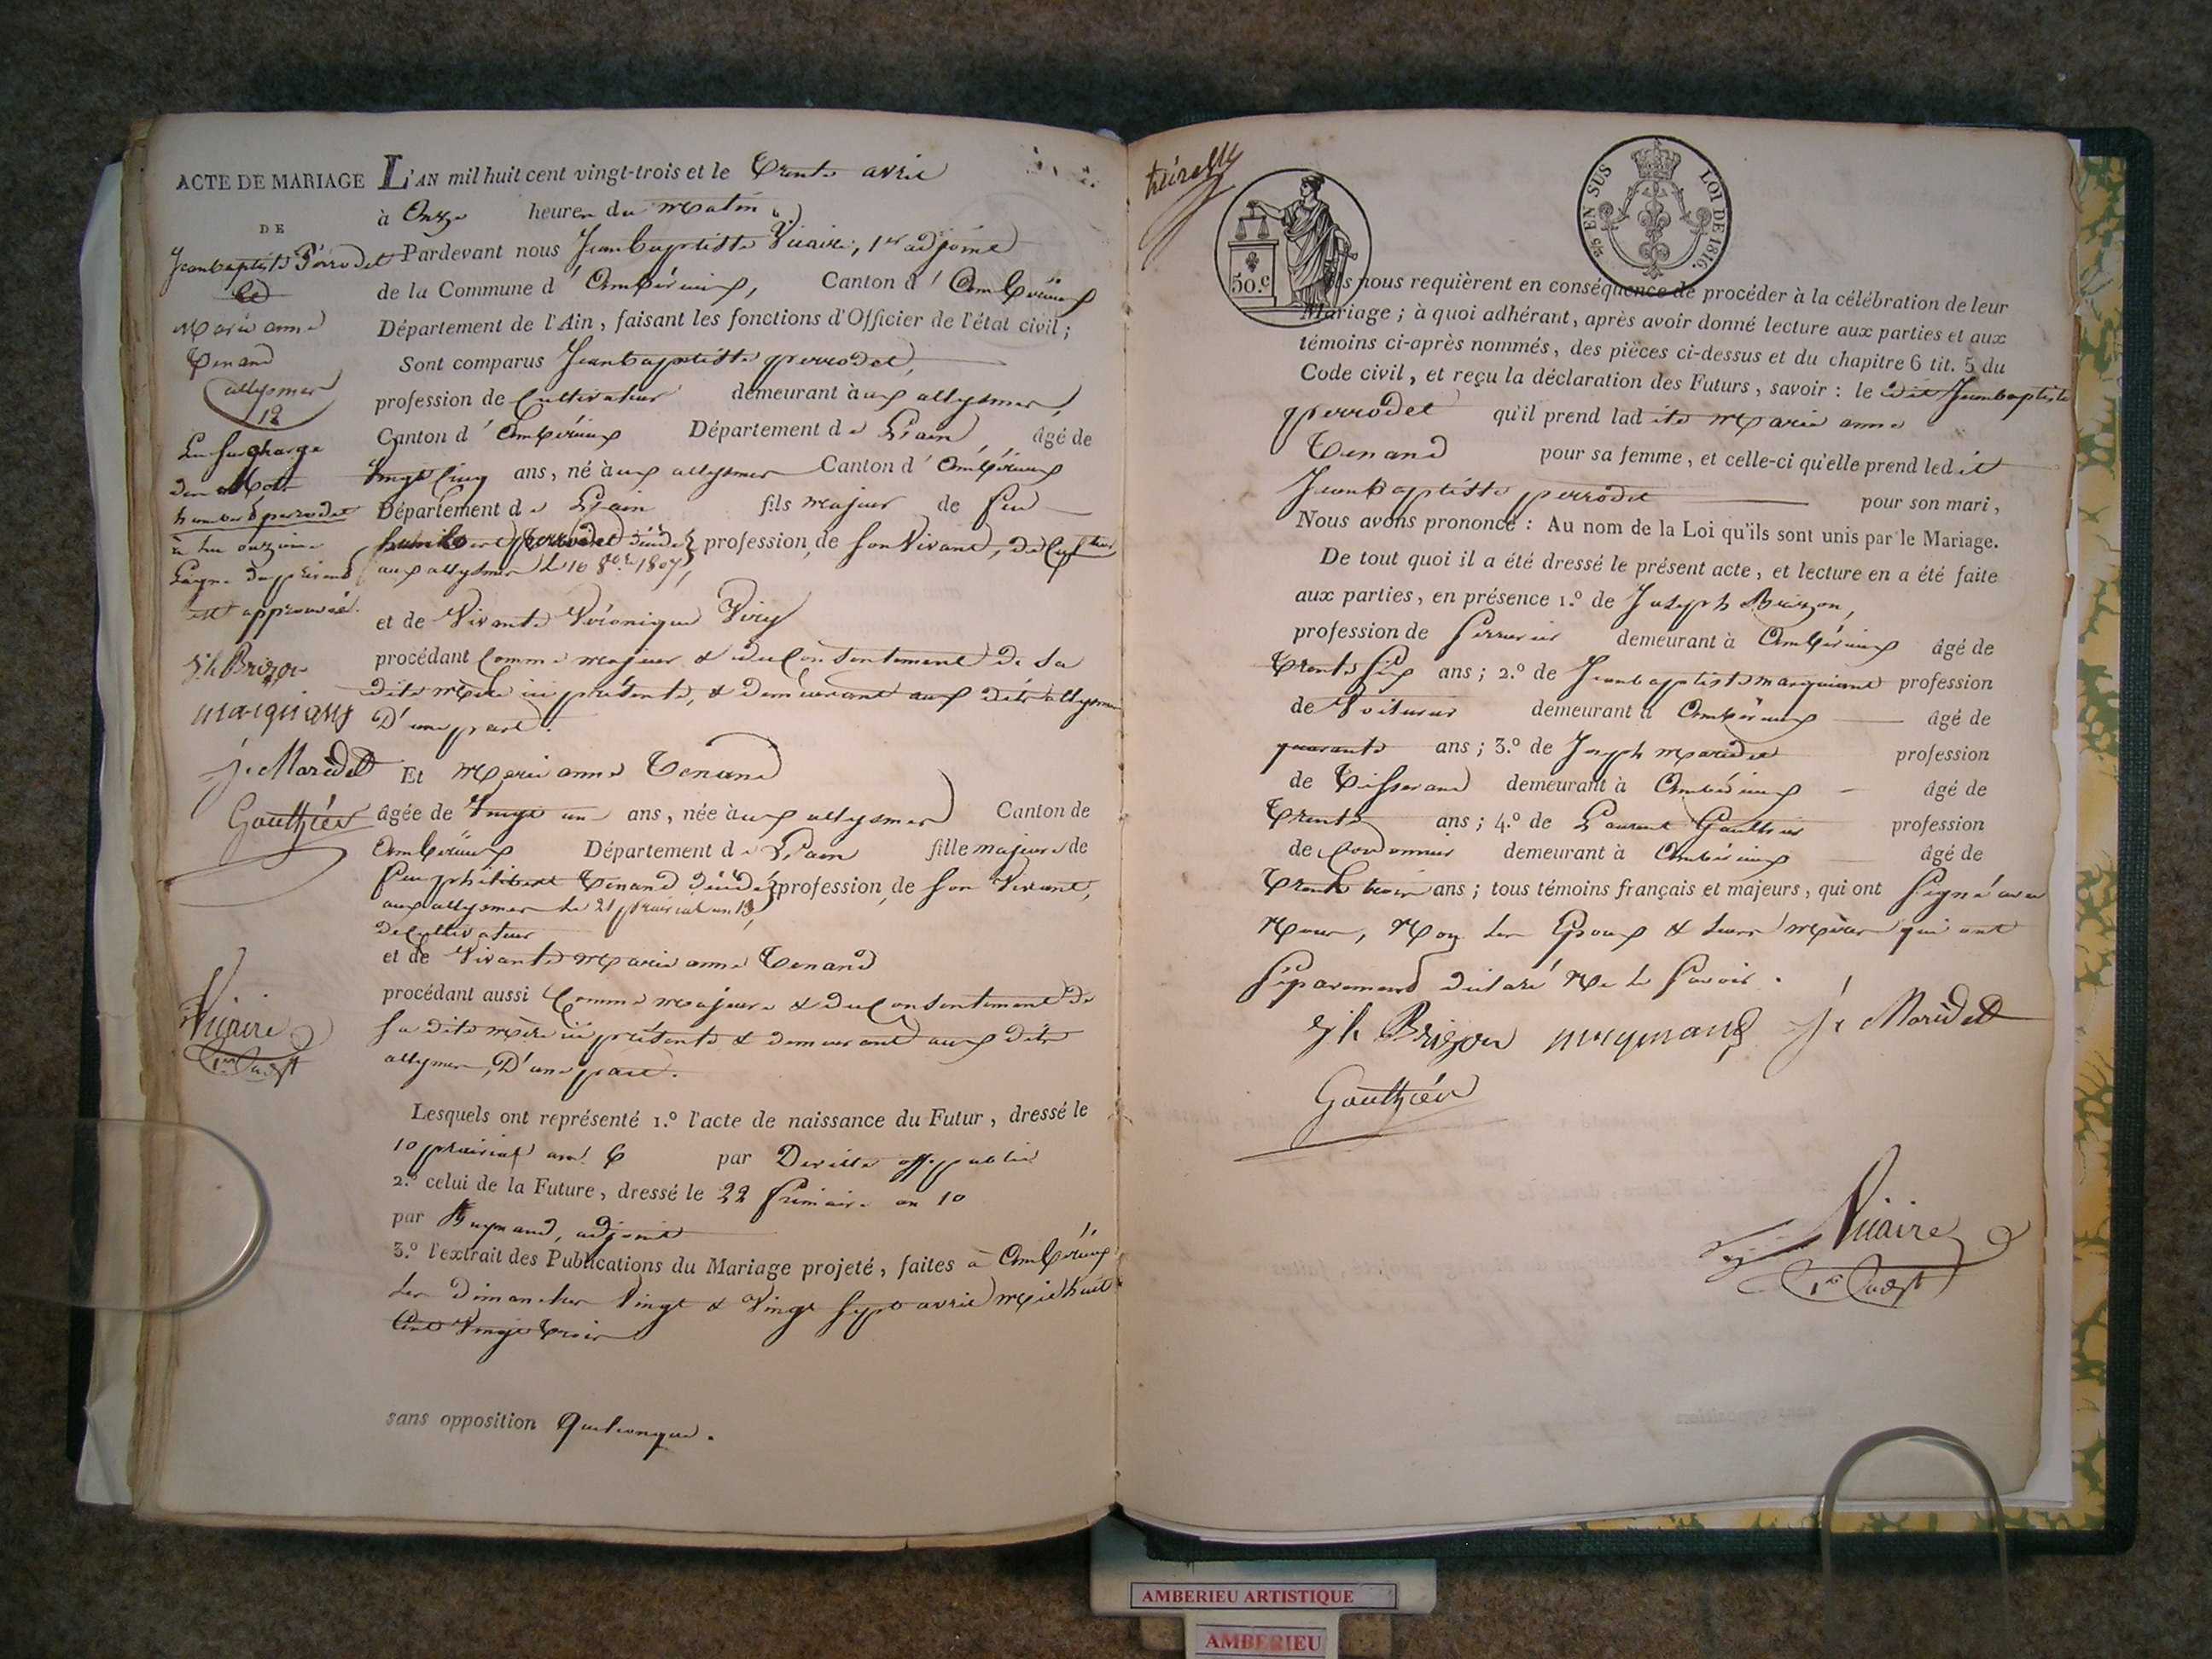 ACTE DE MARIAGE
DE
Jeanbaptiste Perrodet
Et
Marie anne
Tenand
allymes
12
La surcharge
des Mots
humbert perrodet
à la onzième
Ligne du présent
est approuvée.
Jh Brizon
marguiant
j. Maredet
Gauthiér
Vicaire
1er adjt
L'AN mil huit cent vingt-trois et le Trente avril
à Onze heures du matin,
Pardevant nous Jeanbaptiste Vicaire, 1er adjoint
de la Commune d'Ambérieux, Canton d'Ambérieux
Département de l'Ain, faisant les fonctions d'Officier de l'état civil;
Sont comparus Jeanbaptiste perrodet,
profession de Cultivateur demeurant àux allymes,
Canton d'Ambérieux Département de L'ain, âgé de
Vingt Cinq ans, né àux allymes Canton d'Ambérieux
Département de L'ain fils majeur de feu
humbert perrodet décédé profession, de son Vivant, de Cultteur
aux allymes le 16 8bre 1807,
et de Vivante Véronique Viry
procédant Comme majeur & du Consentement de sa
dite mère ici présente, & demeurant aux dits allymes
D'une part.
Et Marie anne Tenand
âgée de Vingt un ans, née àux allymes Canton de
Ambérieux Département de L'ain fille majeure de
feu philibert Tenand décédé profession, de son Vivant,
aux allymes le 21 prairial an 13,
de Cultivateur
et de Vivante Marie anne Tenand
procédant aussi Comme majeure & du Consentement de
sa dite mère ici présente & demeurant aux dits
allymes, D'une part.
Lesquels ont représenté 1.º l'acte de naissance du Futur, dressé le
10 prairial an 6 par Deville off. public
2.º celui de la Future, dressé le 22 frimaire an 10
par adjoint
3.º l'extrait des Publications du Mariage projeté, faites à Ambérieux
les Dimanches Vingt & Vingt Sept avril mil huit
Cent Vingt Trois
sans opposition Quelconque.
50.c
5/2 EN SUS LOI DE 1816.
Ils nous requièrent en conséquence de procéder à la célébration de leur
Mariage; à quoi adhérant, après avoir donné lecture aux parties et aux
témoins ci-après nommés, des pièces ci-dessus et du chapitre 6 tit. 5 du
Code civil, et reçu la déclaration des Futurs, savoir: le dit Jeanbaptiste
perrodet qu'il prend ladite Marie anne
Tenand pour sa femme, et celle-ci qu'elle prend ledit
Jeanbaptiste perrodet pour son mari,
Nous avons prononcé: Au nom de la Loi qu'ils sont unis par le Mariage.
De tout quoi il a été dressé le présent acte, et lecture en a été faite
aux parties, en présence 1.º de Joseph Brizon,
profession de Serrurier demeurant à Ambérieux âgé de
Trente Six ans; 2.º de Jeanbaptiste marguiant profession
de Voiturier demeurant à Ambérieux âgé de
quarante ans; 3.º de Joseph maredet profession
de Tisserand demeurant à Ambérieux âgé de
Trente ans; 4.º de Laurent Gauthier profession
de Cordonnier demeurant à Ambérieux âgé de
Trente trois ans; tous témoins français et majeurs, qui ont Signé avec
Nous, Non les Epoux & leurs mères qui ont
Séparement déclaré Ne le Savoir.
Jh Brizon marguiant j. Maredet
Gauthiér
Vicaire
1er adjt
AMBERIEU ARTISTIQUE
AMBERIEU